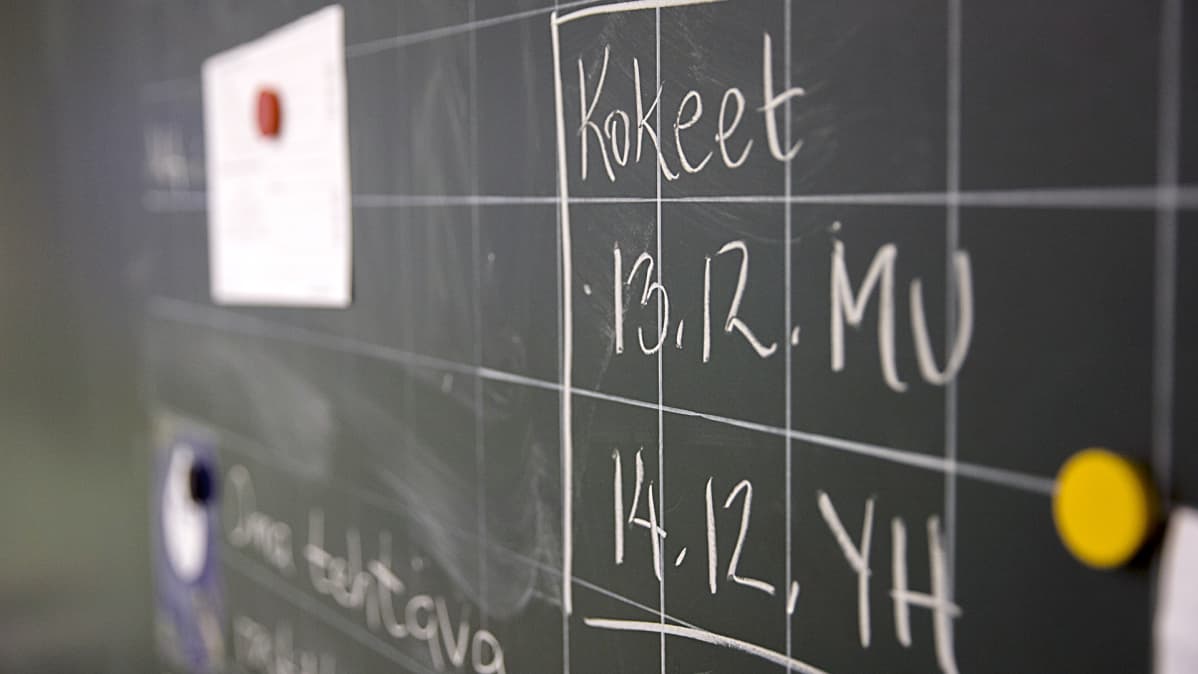 Kokeet
13.12. MU
14.12. YH
Oma tehtävä